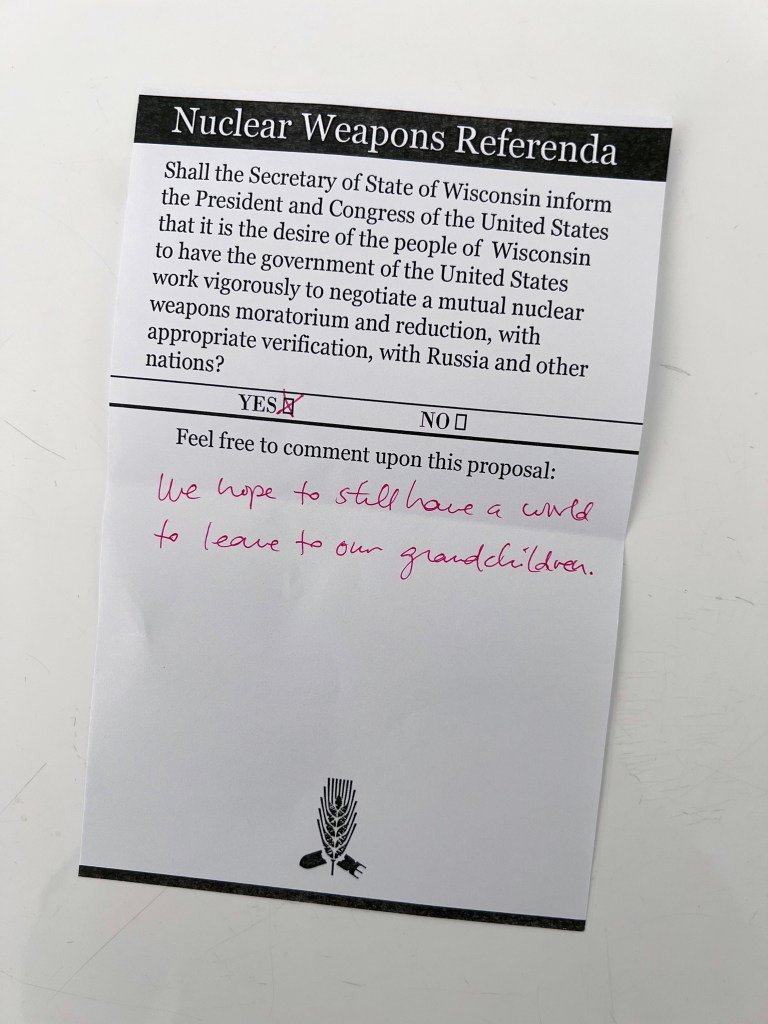 Nuclear Weapons Referenda
Shall the Secretary of State of Wisconsin inform
the President and Congress of the United States
that it is the desire of the people of Wisconsin
to have the government of the United States
work vigorously to negotiate a mutual nuclear
weapons moratorium and reduction, with
appropriate verification, with Russia and other
nations?
YES NO
Feel free to comment upon this proposal:
We hope to still have a world
to leave to our grandchildren.